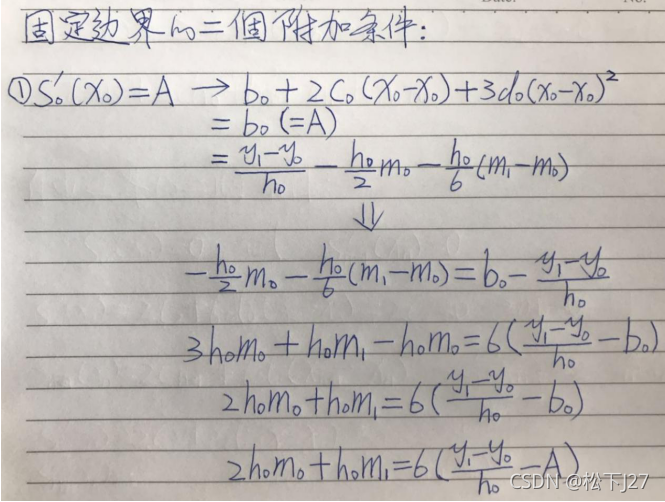 固定边界的二個附加条件:
①S₀′(x₀)=A → b₀+2c₀(x₀-x₀)+3d₀(x₀-x₀)²
= b₀(=A)
= (y₁-y₀)/h₀ - (h₀/2)m₀ - (h₀/6)(m₁-m₀)
⇓
-(h₀/2)m₀ - (h₀/6)(m₁-m₀) = b₀ - (y₁-y₀)/h₀
3h₀m₀+h₀m₁-h₀m₀=6((y₁-y₀)/h₀ - b₀)
2h₀m₀+h₀m₁=6((y₁-y₀)/h₀ - b₀)
2h₀m₀+h₀m₁=6((y₁-y₀)/h₀ - A)
CSDN @松下J27